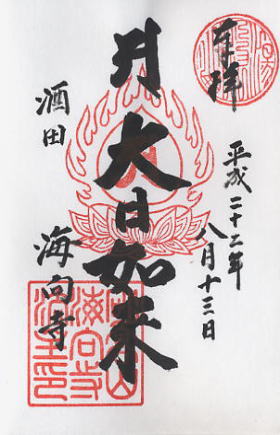 奉拝
平成二十二年
八月十三日
大日如来
酒田
海向寺